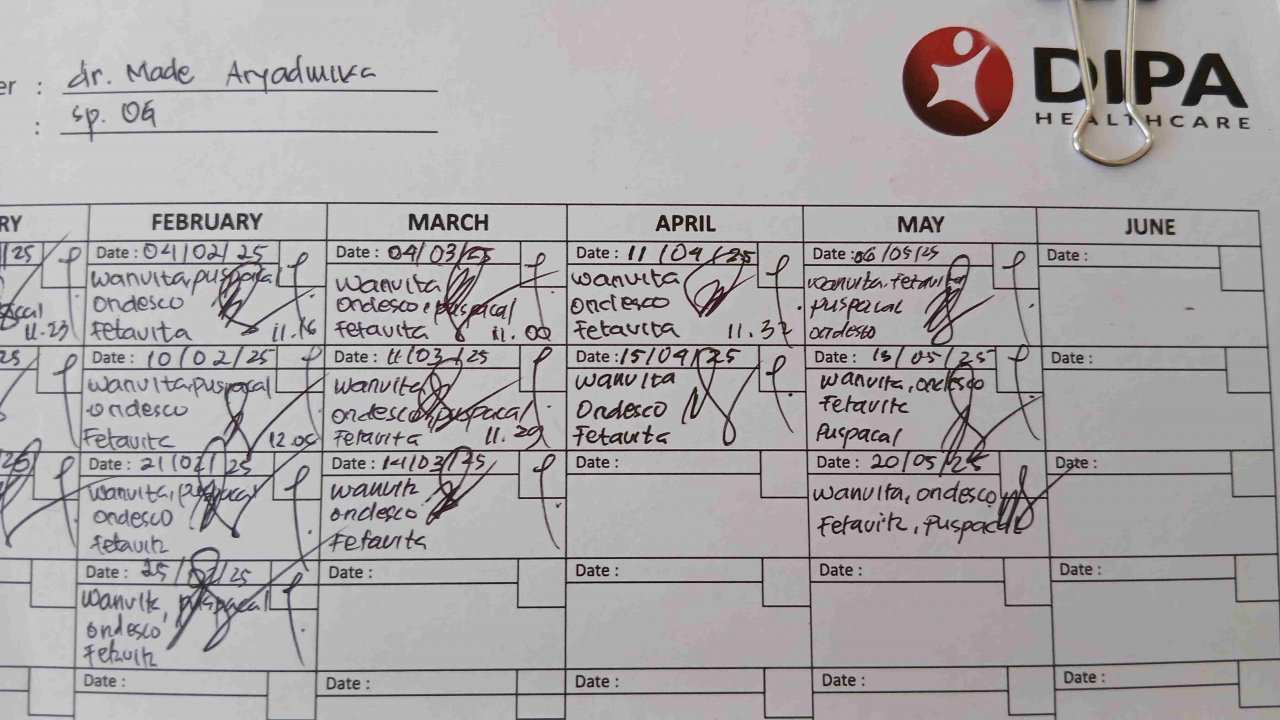 er : dr. Made Aryadwika
: sp. OG
DIPA
HEALTHCARE
RY
FEBRUARY
MARCH
APRIL
MAY
JUNE
/25
Date : 04/02/25
Date : 04/03/25
Date : 11/04/25
Date : 06/05/25
Date :
11.23
wanvita, puspacal
ondesco
Fetavita 11.16
wanvita
ondesco, puspacal
Fetavita 11.00
wanvita
ondesco
Fetavita 11.37
wanvita, Fetavita
puspacal
ondesco
25
Date : 10/02/25
Date : 11/03/25
Date : 15/04/25
Date : 13/05/25
Date :
wanvita, puspacal
ondesco
Fetavita 12.05
wanvita
ondesco, puspacal
Fetavita 11.29
wanvita
Ondesco
Fetavita
wanvita, ondesco
Fetavita
Puspacal
Date : 21/02/25
Date : 14/03/25
Date :
Date : 20/05/25
Date :
wanvita, puspacal
ondesco
Fetavita
wanvita
ondesco
Fetavita
wanvita, ondesco
Fetavita, puspacal
Date : 25/02/25
Date :
Date :
Date :
Date :
wanvita, puspacal
ondesco
Fetavita
Date :
Date :
Date :
Date :
Date :